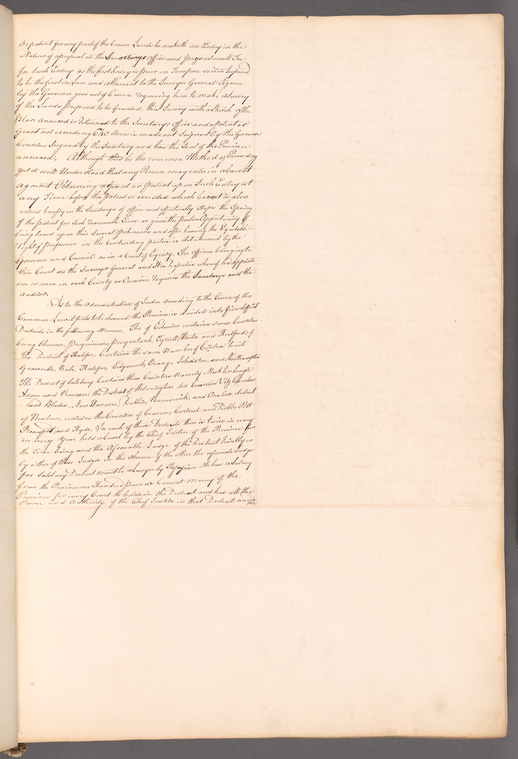 or patent for any part of the Crown Lands he maketh an Entry in the
Nature of a proposal in the Secretarys office and pays a small Fee
for Such Entry as the first Entry is prior in Time so it is
to be the first in Law and a Warrant to the Surveyor General Signed
by the Governor goes out of Course requiring him to make a Survey
of the Lands proposed to be Granted, this Survey with a Sketch of the
plan annexed is returned to the Secretarys office and a patent or
Grant is made out Signed by the Governor
Counter Signed by the Secretary and has the Seal of the Province
annexed; Although this is the common Method of Proceeding
yet it is well Understood that any Person may enter a Caveat
against Obtaining a Grant or Patent upon Such Entry at
any Time before the Patent is which Caveat is also
entered in the Secretarys office and effectually Stops the
of the Patent for Such reasonable Time as gives the parties Opportunity of
being heard upon their Several and after hearing the
right of the Contending parties is determined by the
Governor and Council as in a Court of Equity. The officers belonging to
this Court are the Surveyor General and his Deputies whereof he appoints
one or more in each County as Occasion requires the Secretary and the
Auditor.
As to the Administration of Justice according to the Course of the
Common Law it is to be observed the Province is divided into five different
Districts in the following Manner. The of Edenton contains Seven Counties
being Chowan, Perquimans, Pasquotank, Tyrrell, Bertie and Hertford; of
The District of Halifax Contains the same Number of Counties to wit
Granville, Bute, Halifax, Edgcomb, Orange, Johnston, and Northampton
The District of Salisbury Contains three Counties Namely Mecklenburgh
Anson and Rowan; the District of Wilmington has
land Bladen, New Hanover, Duplin, Brunswick, and Onslow, district
of Newbern, contains the Counties of Craven, Carteret and Dobbs Pitt
Beaufort and Hyde, In each of these Districts there is twice in every
in every Year held a Court by the Chief Justice of the Province for
the Time being and the Associate Judge of the District Jointly or
by either of those Judges in the Absence of the other the Associate Judge
for Salisbury District must be a Lawyer by Profession he has a Salary
from the Province one Hundred pounds Current Money of the
Province for every Court he holds in the District and has all the
Power and Authority of the Chief Justice in that District